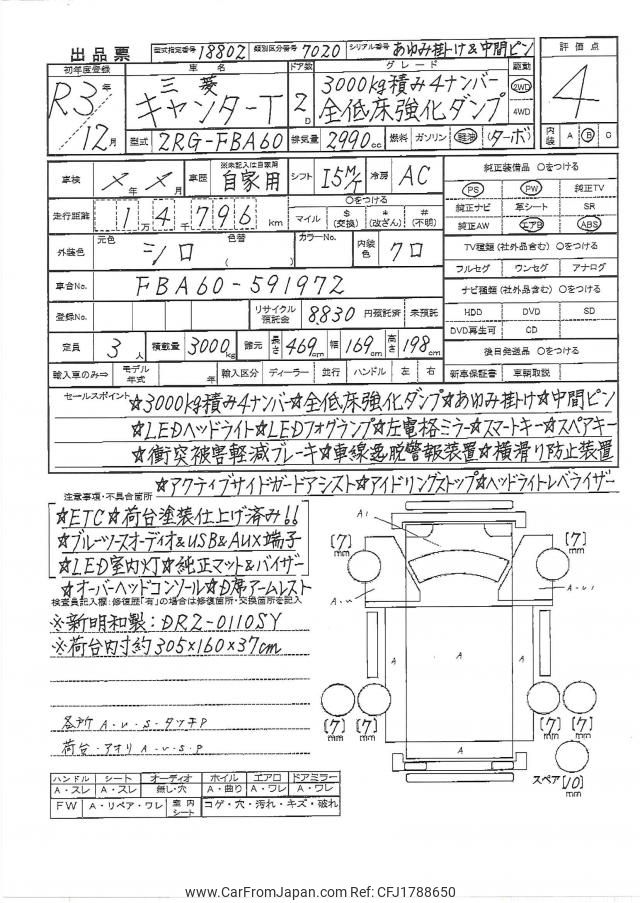 出品票 型式指定番号 18802 類別区分番号 7020 シリアル番号 あゆみ掛け&中間ピン
評価点 4
初年度登録 車名 ドア数 グレード 駆動
R3年 三菱 2D 3000kg積み4ナンバー 2WD
12月 キャンターT 全低床強化ダンプ 4WD
型式 2RG-FBA60 排気量 2990cc 燃料 ガソリン 軽油 (ターボ) 内装 A B C
車検 メ年 メ月 車歴 ※未記入は自家用 自家用 シフト I5M/T 冷房 AC
走行距離 1万4千796km ○をつける マイル $(交換) *(改ざん) #(不明)
外装色 元色 シロ 色替 ( ) カラーNo. 内装色 クロ
車台No. FBA60-591972
登録No. リサイクル預託金 8,830 円預託済 未預託
定員 3人 積載量 3000kg 諸元 長さ 469cm 幅 169cm 高さ 198cm
輸入車のみ⇒ モデル年式 年 輸入区分 ディーラー 並行 ハンドル 左 右
純正装備品 ○をつける
PS PW 純正TV
純正ナビ 革シート SR
純正AW エアB ABS
TV種類(社外品含む) ○をつける
フルセグ ワンセグ アナログ
ナビ種類(社外品含む) ○をつける
HDD DVD SD
DVD再生可 CD
後日発送品 ○をつける
新車保証書 車輌取説
セールスポイント
☆3000kg積み4ナンバー☆全低床強化ダンプ☆あゆみ掛け☆中間ピン
☆LEDヘッドライト☆LEDフォグランプ☆左電格ミラー☆スマートキー☆スペアキー
☆衝突被害軽減ブレーキ☆車線逸脱警報装置☆横滑り防止装置
☆アクティブサイドガードアシスト☆アイドリングストップ☆ヘッドライトレベライザー
注意事項・不具合箇所
☆ETC☆荷台塗装仕上げ済み!!
☆ブルーツースオーディオ&USB&AUX端子
☆LED室内灯☆純正マット&バイザー
☆オーバーヘッドコンソール☆D席アームレスト
検査員記入欄:修復歴「有」の場合は修復箇所・交換箇所を記入
※新明和製:DR2-0110SY
※荷台内寸約305×160×37cm
各所 A・U・S・タッチP
荷台・アオリ A・U・S・P
A1
[7]mm [7]mm
A・U A・U1
A A A
[7]mm [7]mm [7]mm [7]mm
A
スペア [10]mm
ハンドル シート オーディオ ホイル エアロ ドアミラー
A・スレ A・スレ 無し・穴 A・曲り A・ワレ A・ワレ
FW A・リペア・ワレ 室内シート コゲ・穴・汚れ・キズ・破れ
www.CarFromJapan.com Ref: CFJ1788650